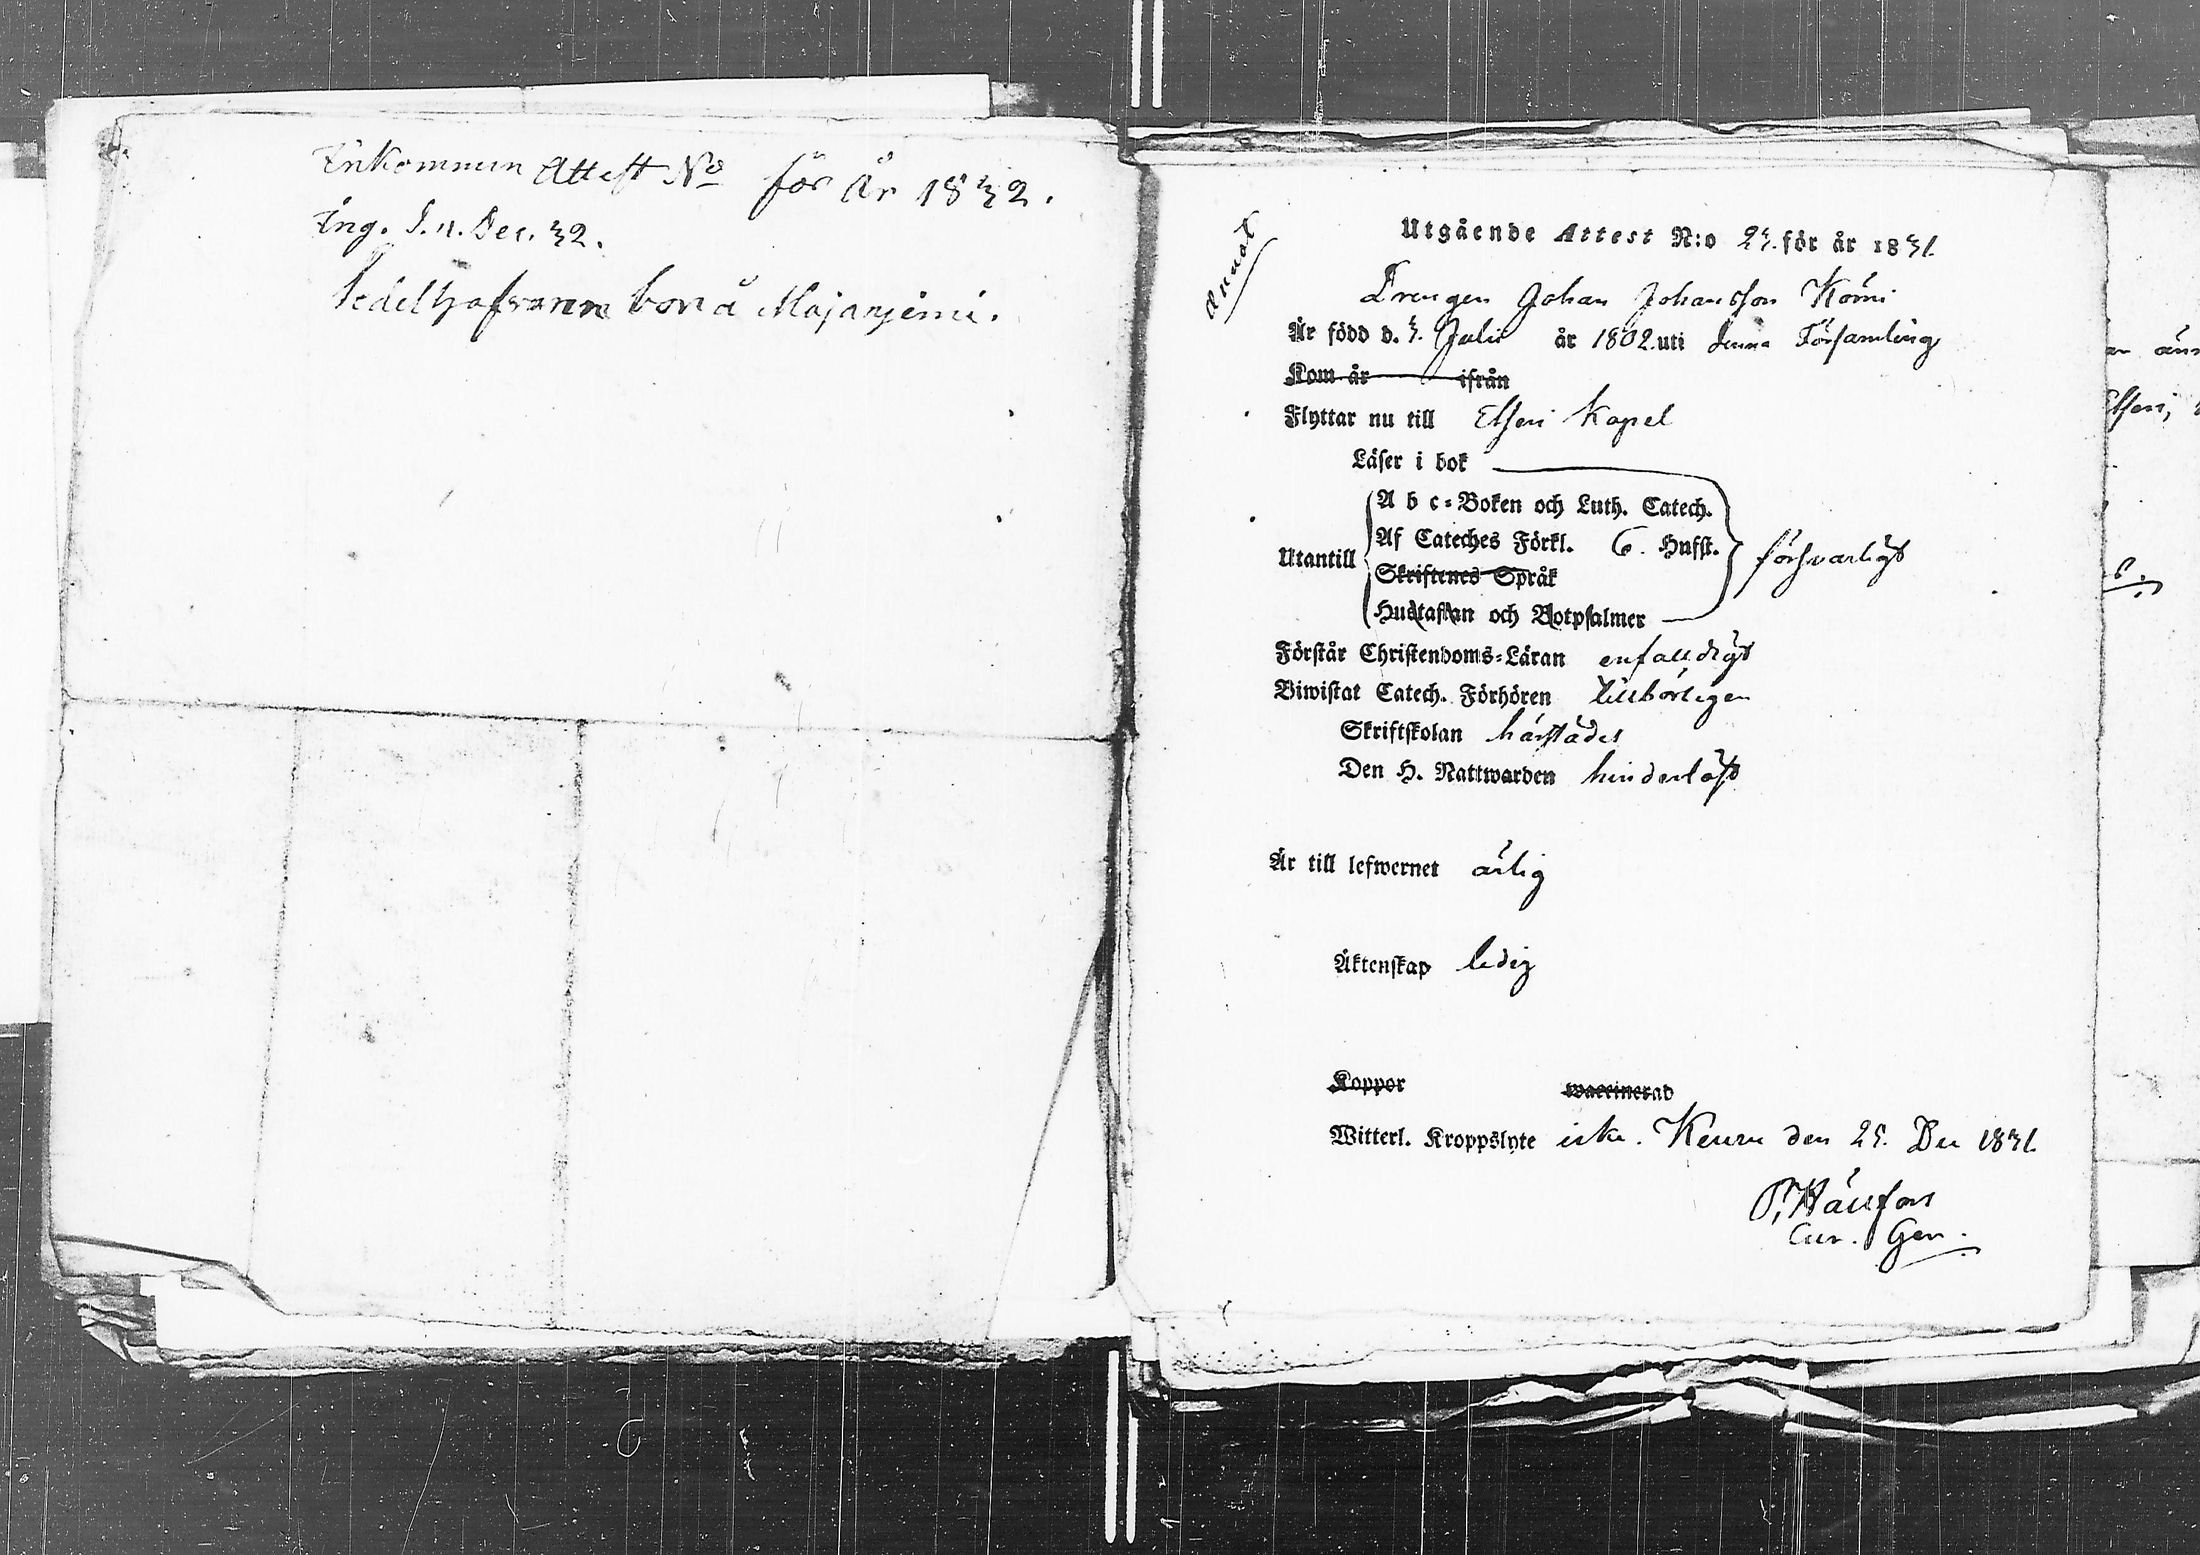 Inkommen Attest No för År 1832.
Ing. d. 11. Dec. 32.
Sedelhafvaren bor å Majanjemi.
Annot
Utgående Attest N:o 23. för år 1831.
Drengen Johan Johansson Körni
Är född d. 3. Julii år 1802. uti denna Församling
Kom år ifrån
Flyttar nu till Etseri Kapel
Läser i bok
A b c-Boken och Luth. Catech.
Af Cateches Förkl. 6. Hufst.
Utantill försvarligt
Skriftenes Språk
Hustaflan och Botpsalmer
Förstår Christendoms-Läran enfalldigt
Biwistat Catech. Förhören tillbörligen
Skriftskolan härstädes
Den H. Nattwarden hinderlöst
Är till lefwernet ärlig
Äktenskap ledig
Koppor waccinerad
Witterl. Kroppslyte icke. Keuru den 25. Dec 1831.
Cur. Gen.
an
Etseri,